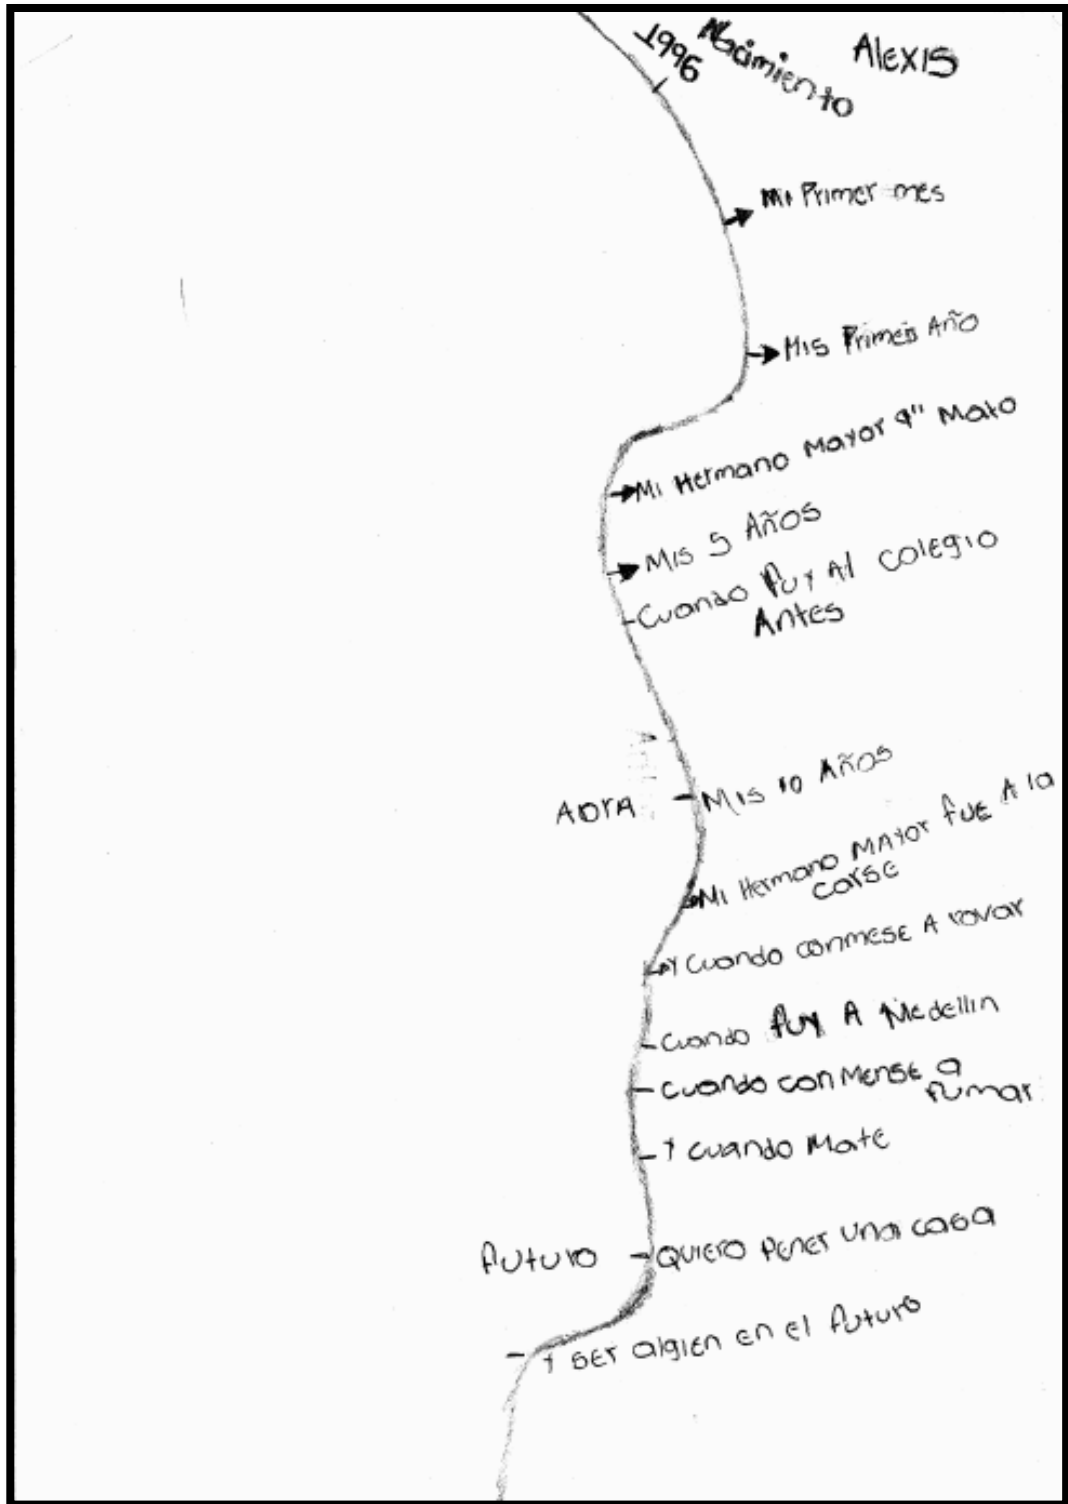 1996
Nacimiento
Alexis
Mi Primer mes
Mis Primeis Año
Mi Hermano Mayor q" Mato
Mis 5 Años
Cuando fuy Al colegio
Antes
Aora
Mis 10 Años
Mi Hermano Mayor fue A la
carse
Y cuando conmese A rovar
Cuando fuy A Medellin
cuando conMense a
fumar
Y cuando Mate
futuro
Quiero pener una casa
Y ser algien en el futuro